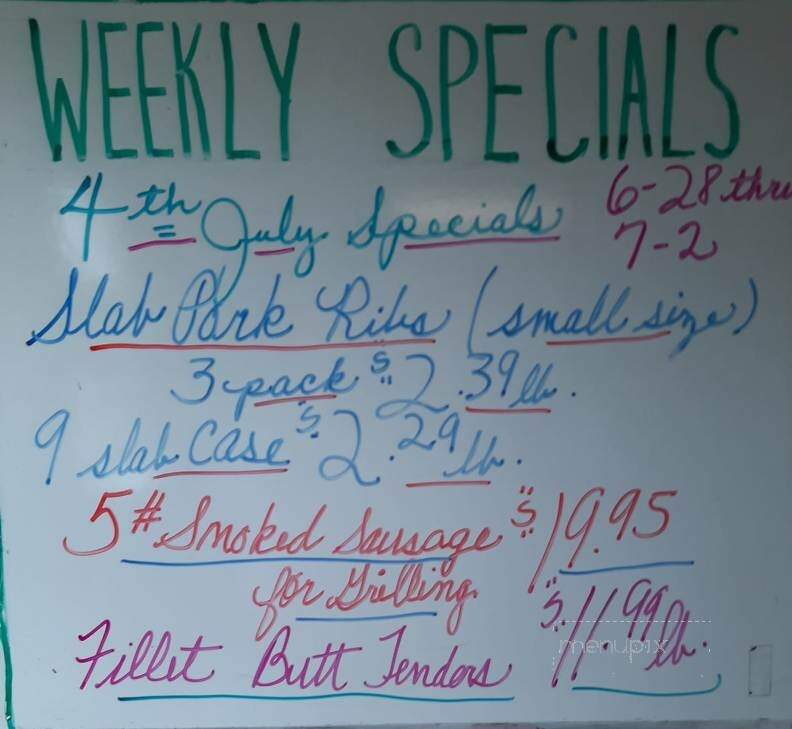 WEEKLY SPECIALS
4th July Specials
6-28 thru
7-2
Slab Pork Ribs (small size)
3 pack $2.39 lb.
9 slab CASE $2.29 lb.
5# Smoked Sausage $19.95
for Grilling
Fillet Butt Tenders $11.99 lb.
menupix